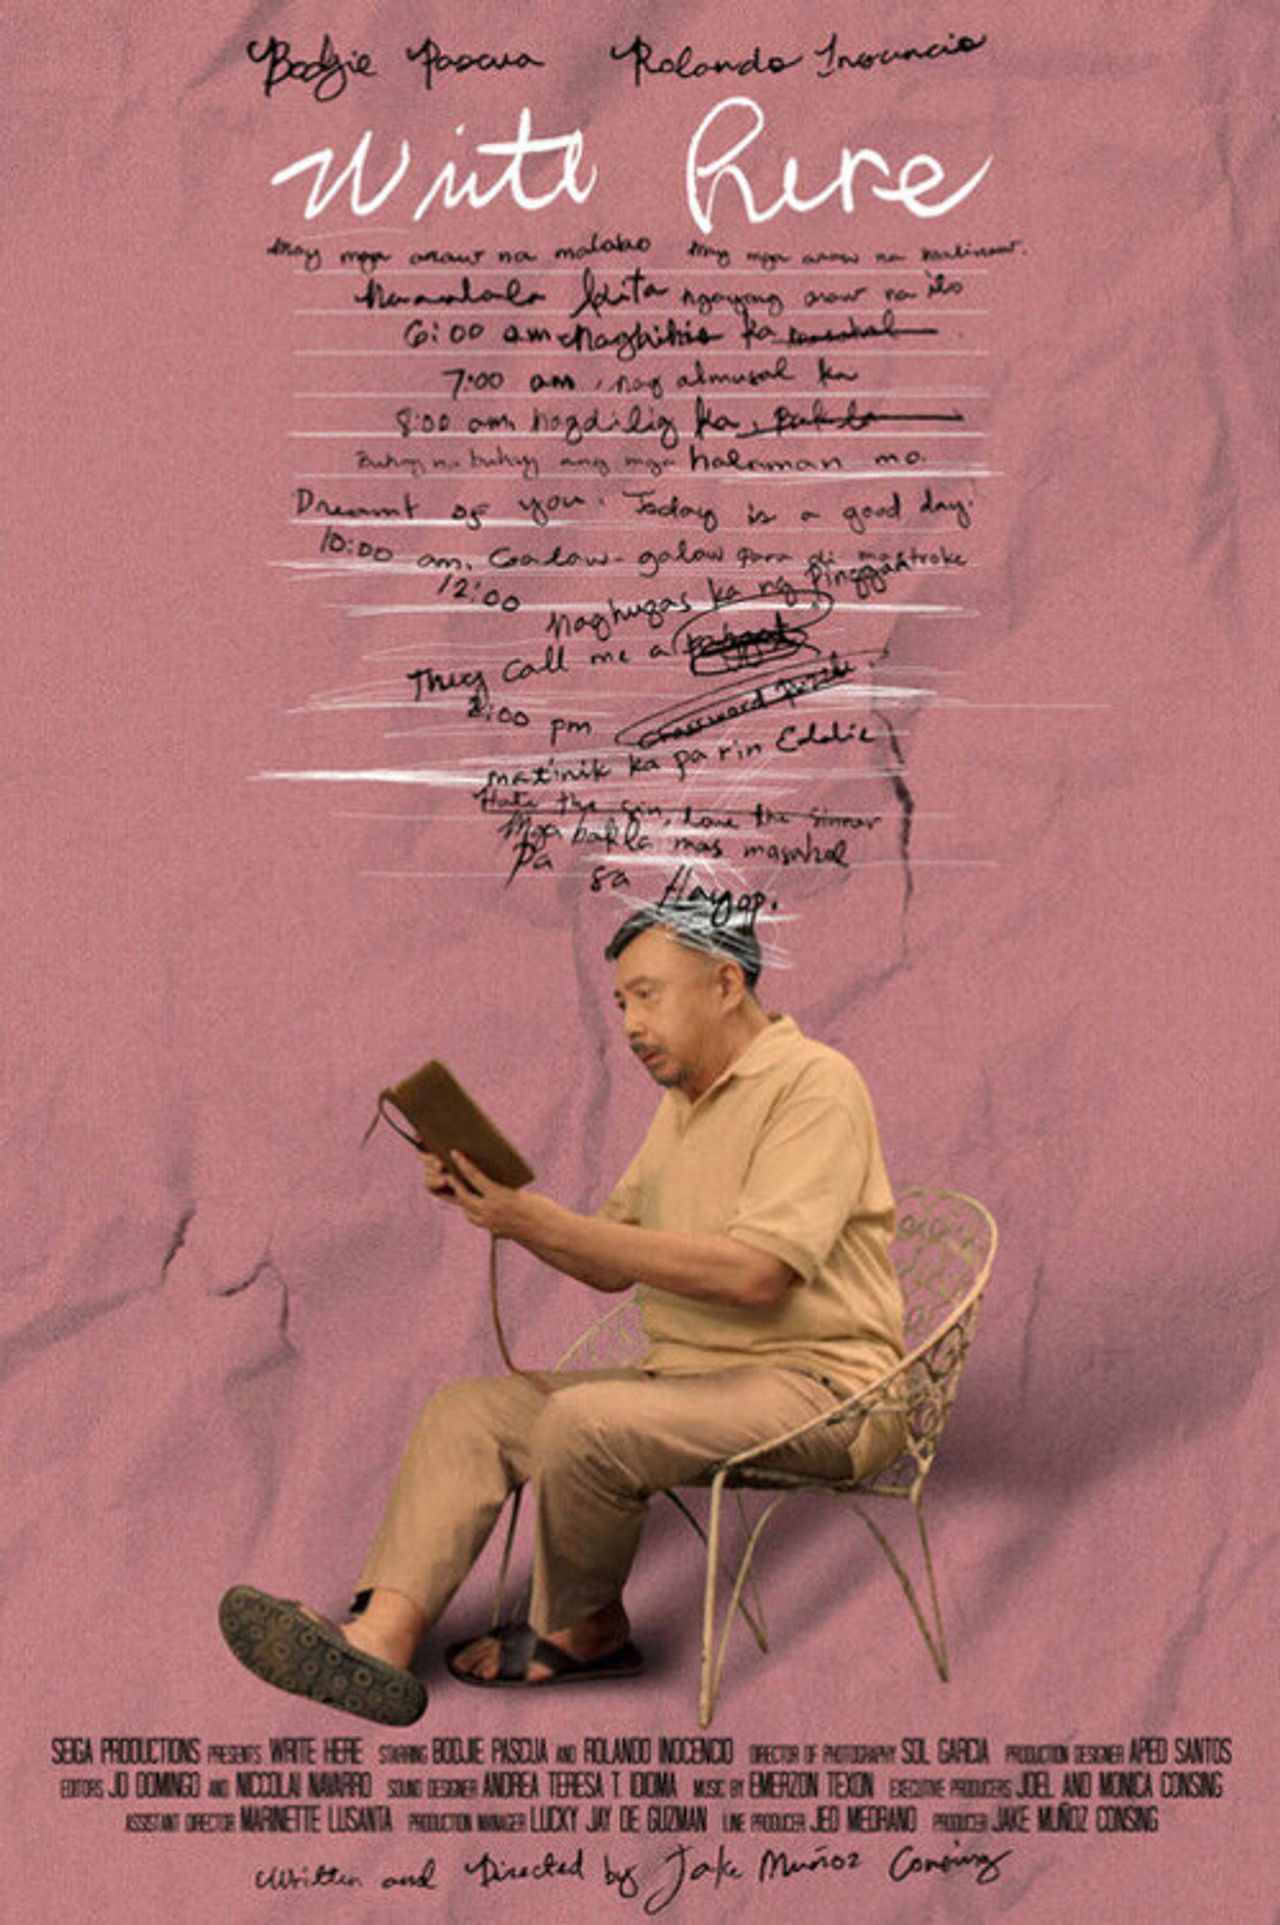 Bodjie Pascua Rolando Inocencio
Write Here
May mga araw na malabo May mga araw na malinaw.
Naaalala kita ngayong araw na ito
6:00 am nagbihis ka
7:00 am, nag almusal ka
8:00 am nagdilig ka, Bakla
Buhay na buhay ang mga halaman mo.
Dreamt of you. Today is a good day.
10:00 am. Galaw-galaw para di ma stroke
12:00 naghugas ka ng pinggan
They call me a
2:00 pm crossword puzzle
matinik ka pa rin Eddie
Hate the sin, love the sinner
Mga bakla mas masahol
Pa sa Hayop.
SEIGA PRODUCTIONS PRESENTS WRITE HERE STARRING BODJIE PASCUA AND ROLANDO INOCENCIO DIRECTOR OF PHOTOGRAPHY SOL GARCIA PRODUCTION DESIGNER APED SANTOS
EDITORS JO DOMINGO AND NICCOLAI NAVARRO SOUND DESIGNER ANDREA TERESA T. IDIOMA MUSIC BY EMERZON TEXON EXECUTIVE PRODUCERS JOEL AND MONICA CONSING
ASSISTANT DIRECTOR MARINETTE LUSANTA PRODUCTION MANAGER LUCKY JAY DE GUZMAN LINE PRODUCER JED MEDRANO PRODUCER JAKE MUÑOZ CONSING
Written and Directed by Jake Muñoz Consing